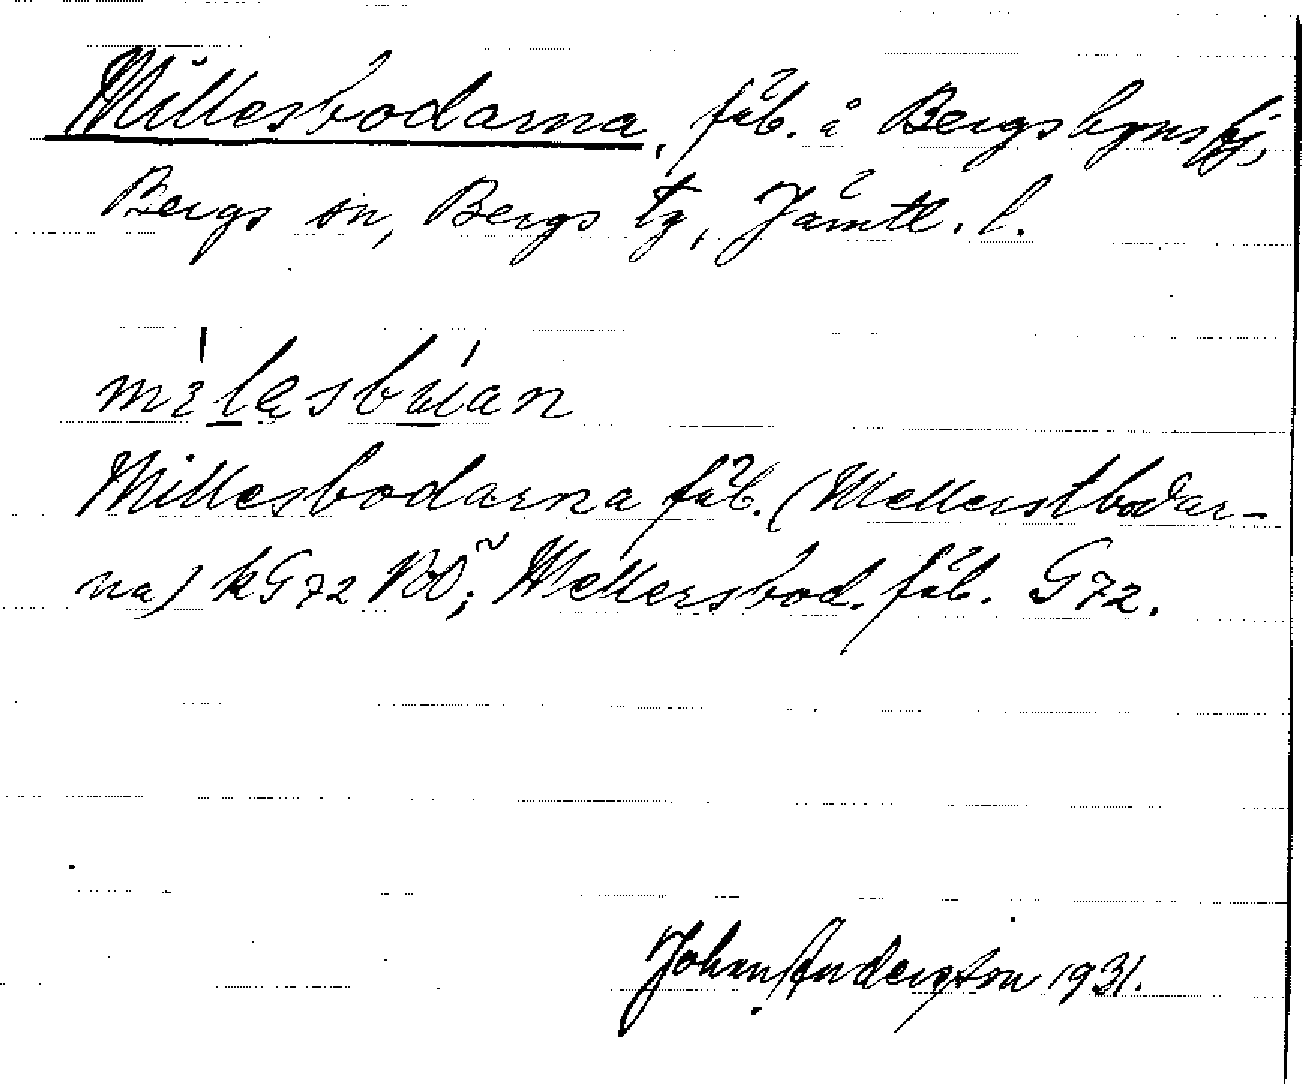 Millesbodarna, fäb. i Bergsbyns fj,
Bergs sn, Bergs tg, Jämtl. l.
mìlesbúian
Millesbodarna fäb. (Mellerstbodar-
na) kG72 Bd; Mellersbod. fäb. G72.
Johan Andersson 1931.